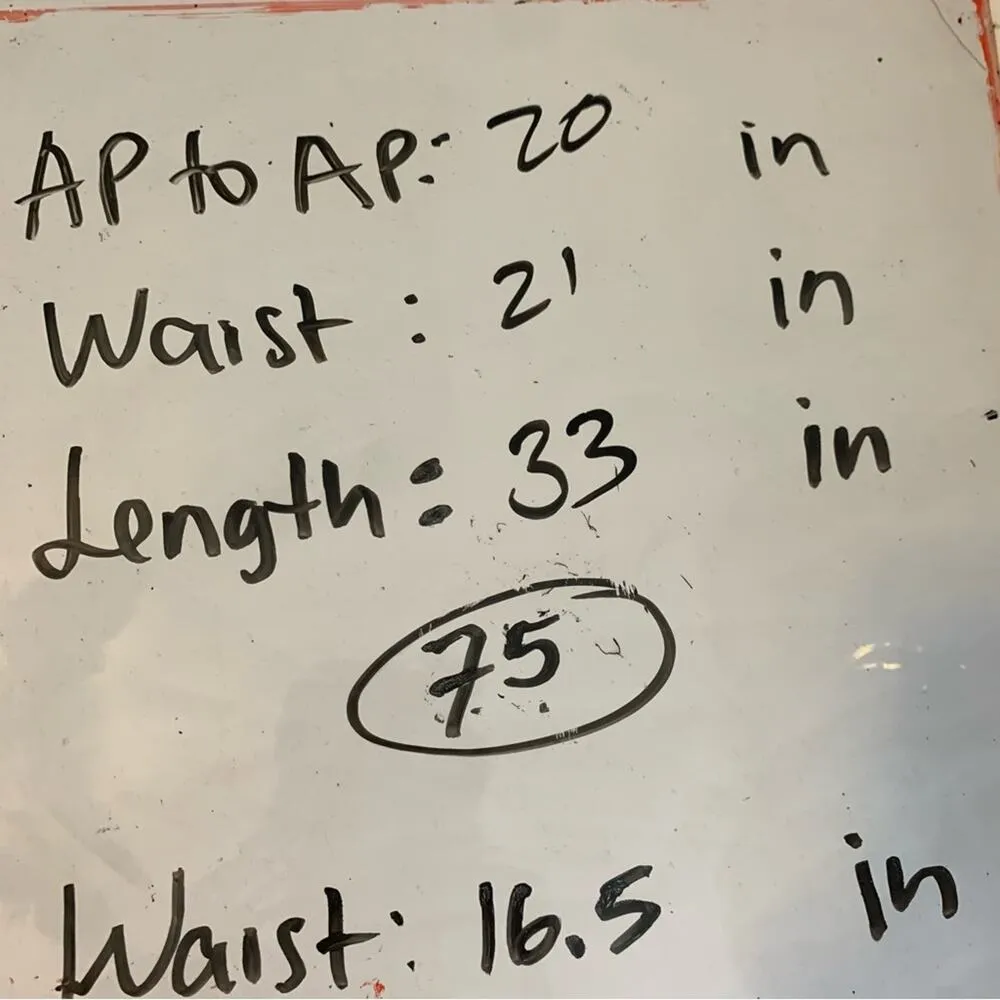 AP to AP: 20 in
Waist : 21 in
Length : 33 in
75
Waist: 16.5 in